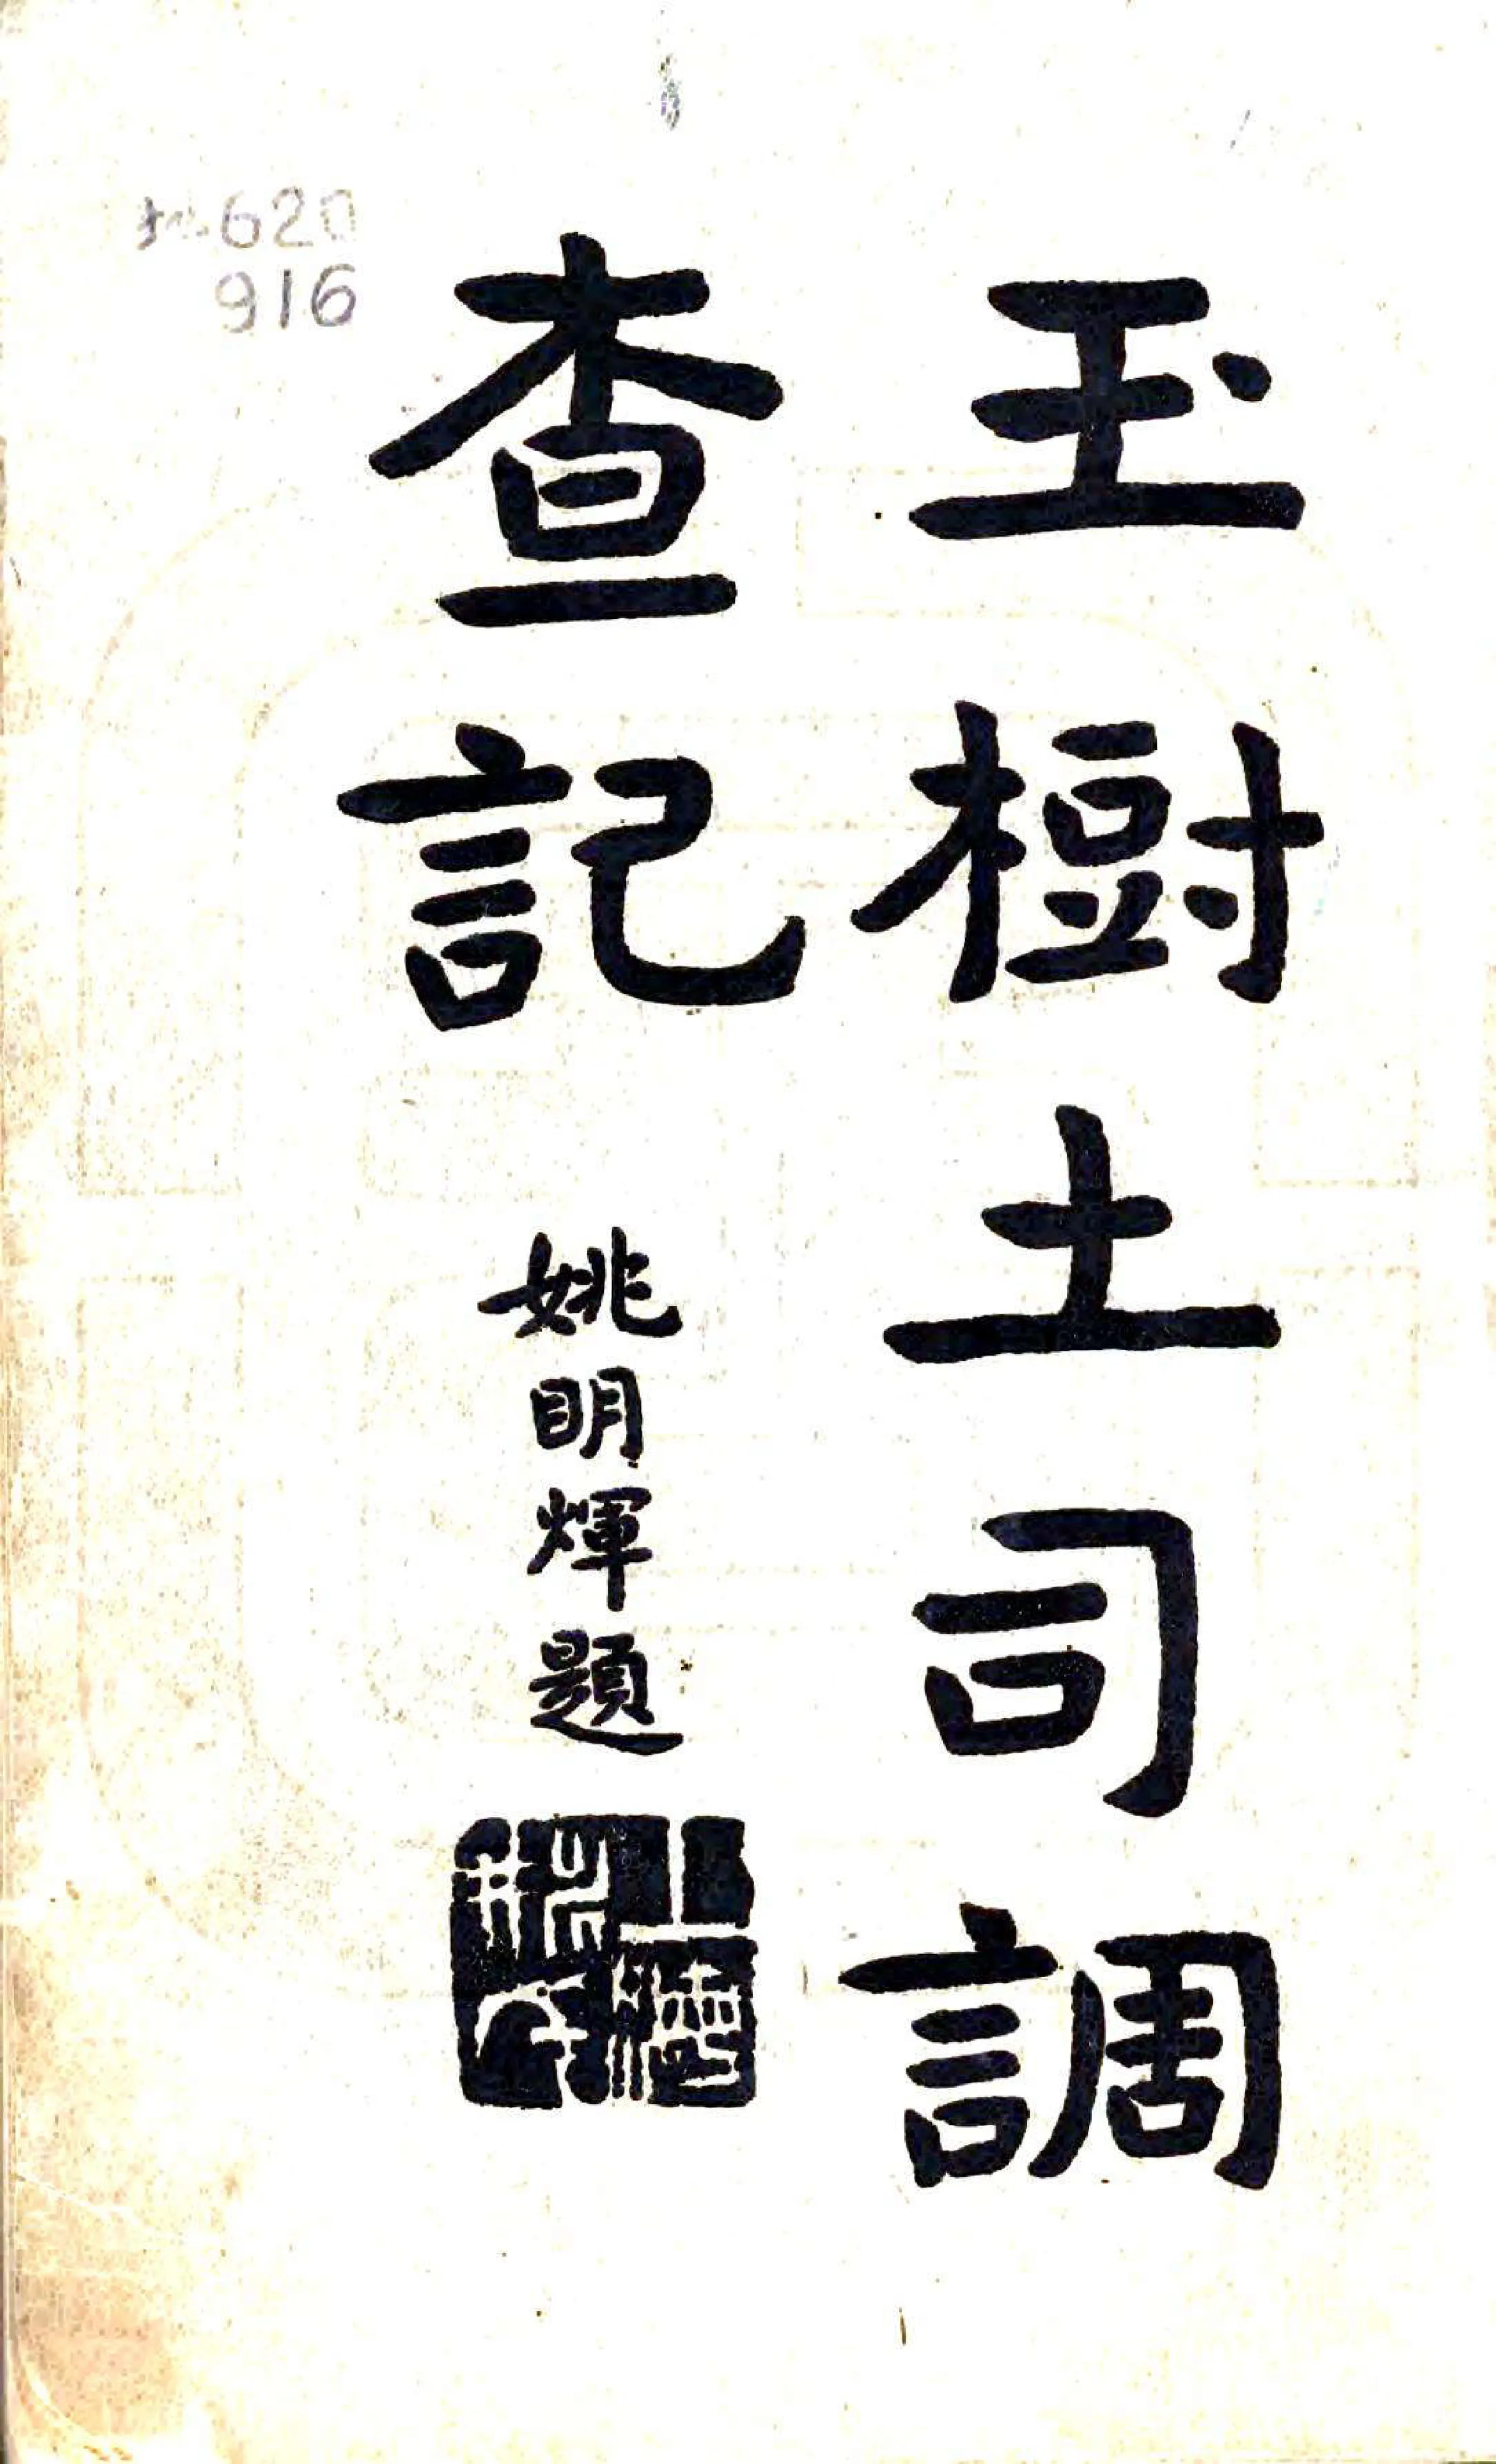 玉樹土司調
查記
姚明煇題
620
916